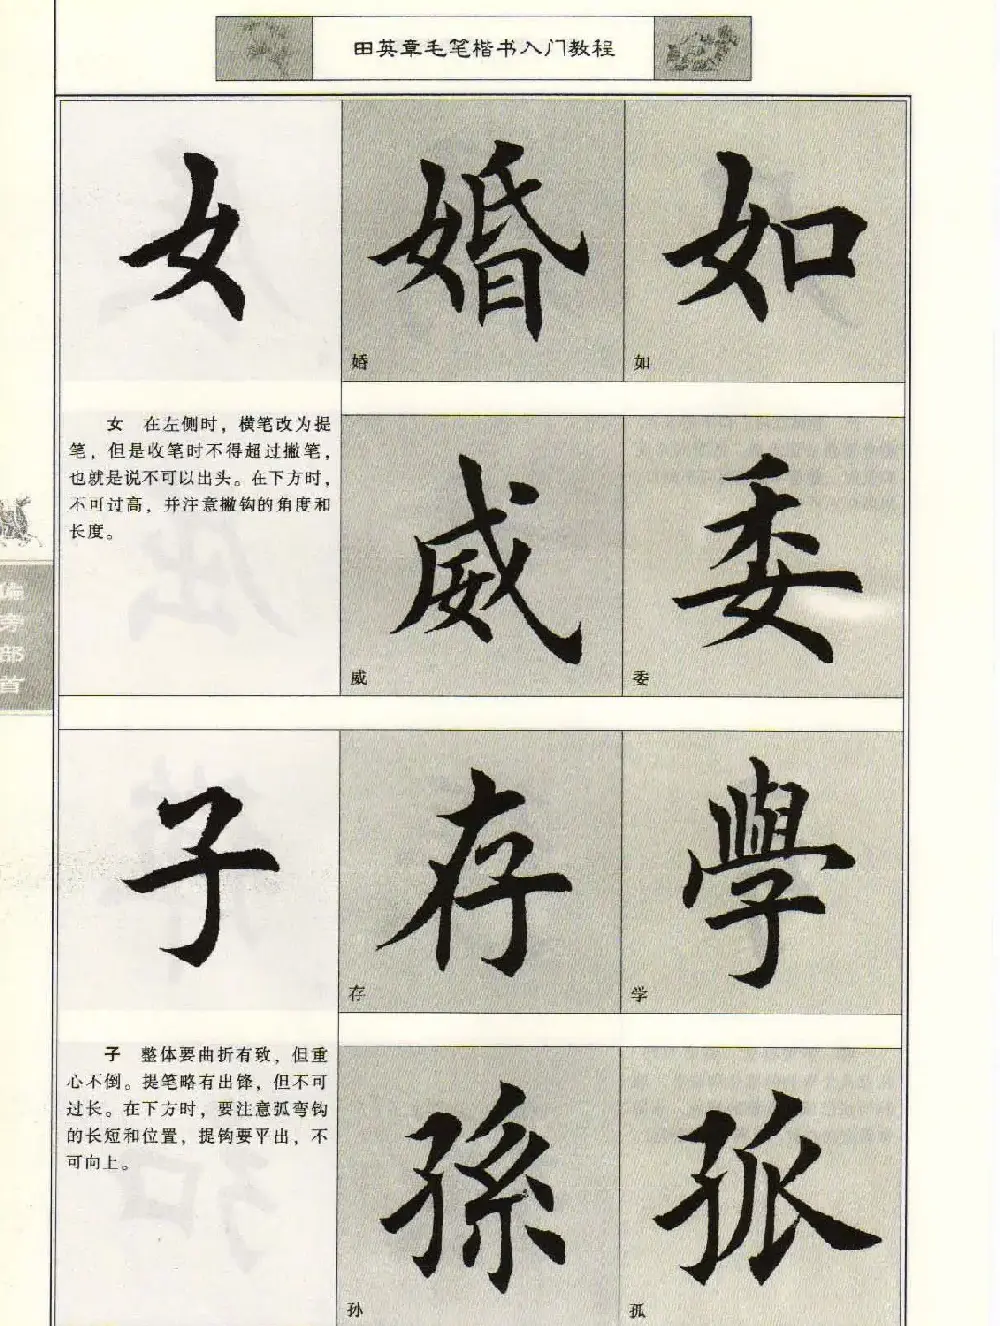 田英章毛笔楷书入门教程
女 婚 如
婚 如
女 在左侧时，横笔改为提
笔，但是收笔时不得超过撇笔，
也就是说不可以出头。在下方时，
不可过高，并注意撇钩的角度和
长度。
威 委
威 委
偏旁部首
子 存 學
存 学
子 整体要曲折有致，但重
心不倒。提笔略有出锋，但不可
过长。在下方时，要注意弧弯钩
的长短和位置，提钩要平出，不
可向上。
孫 孤
孙 孤